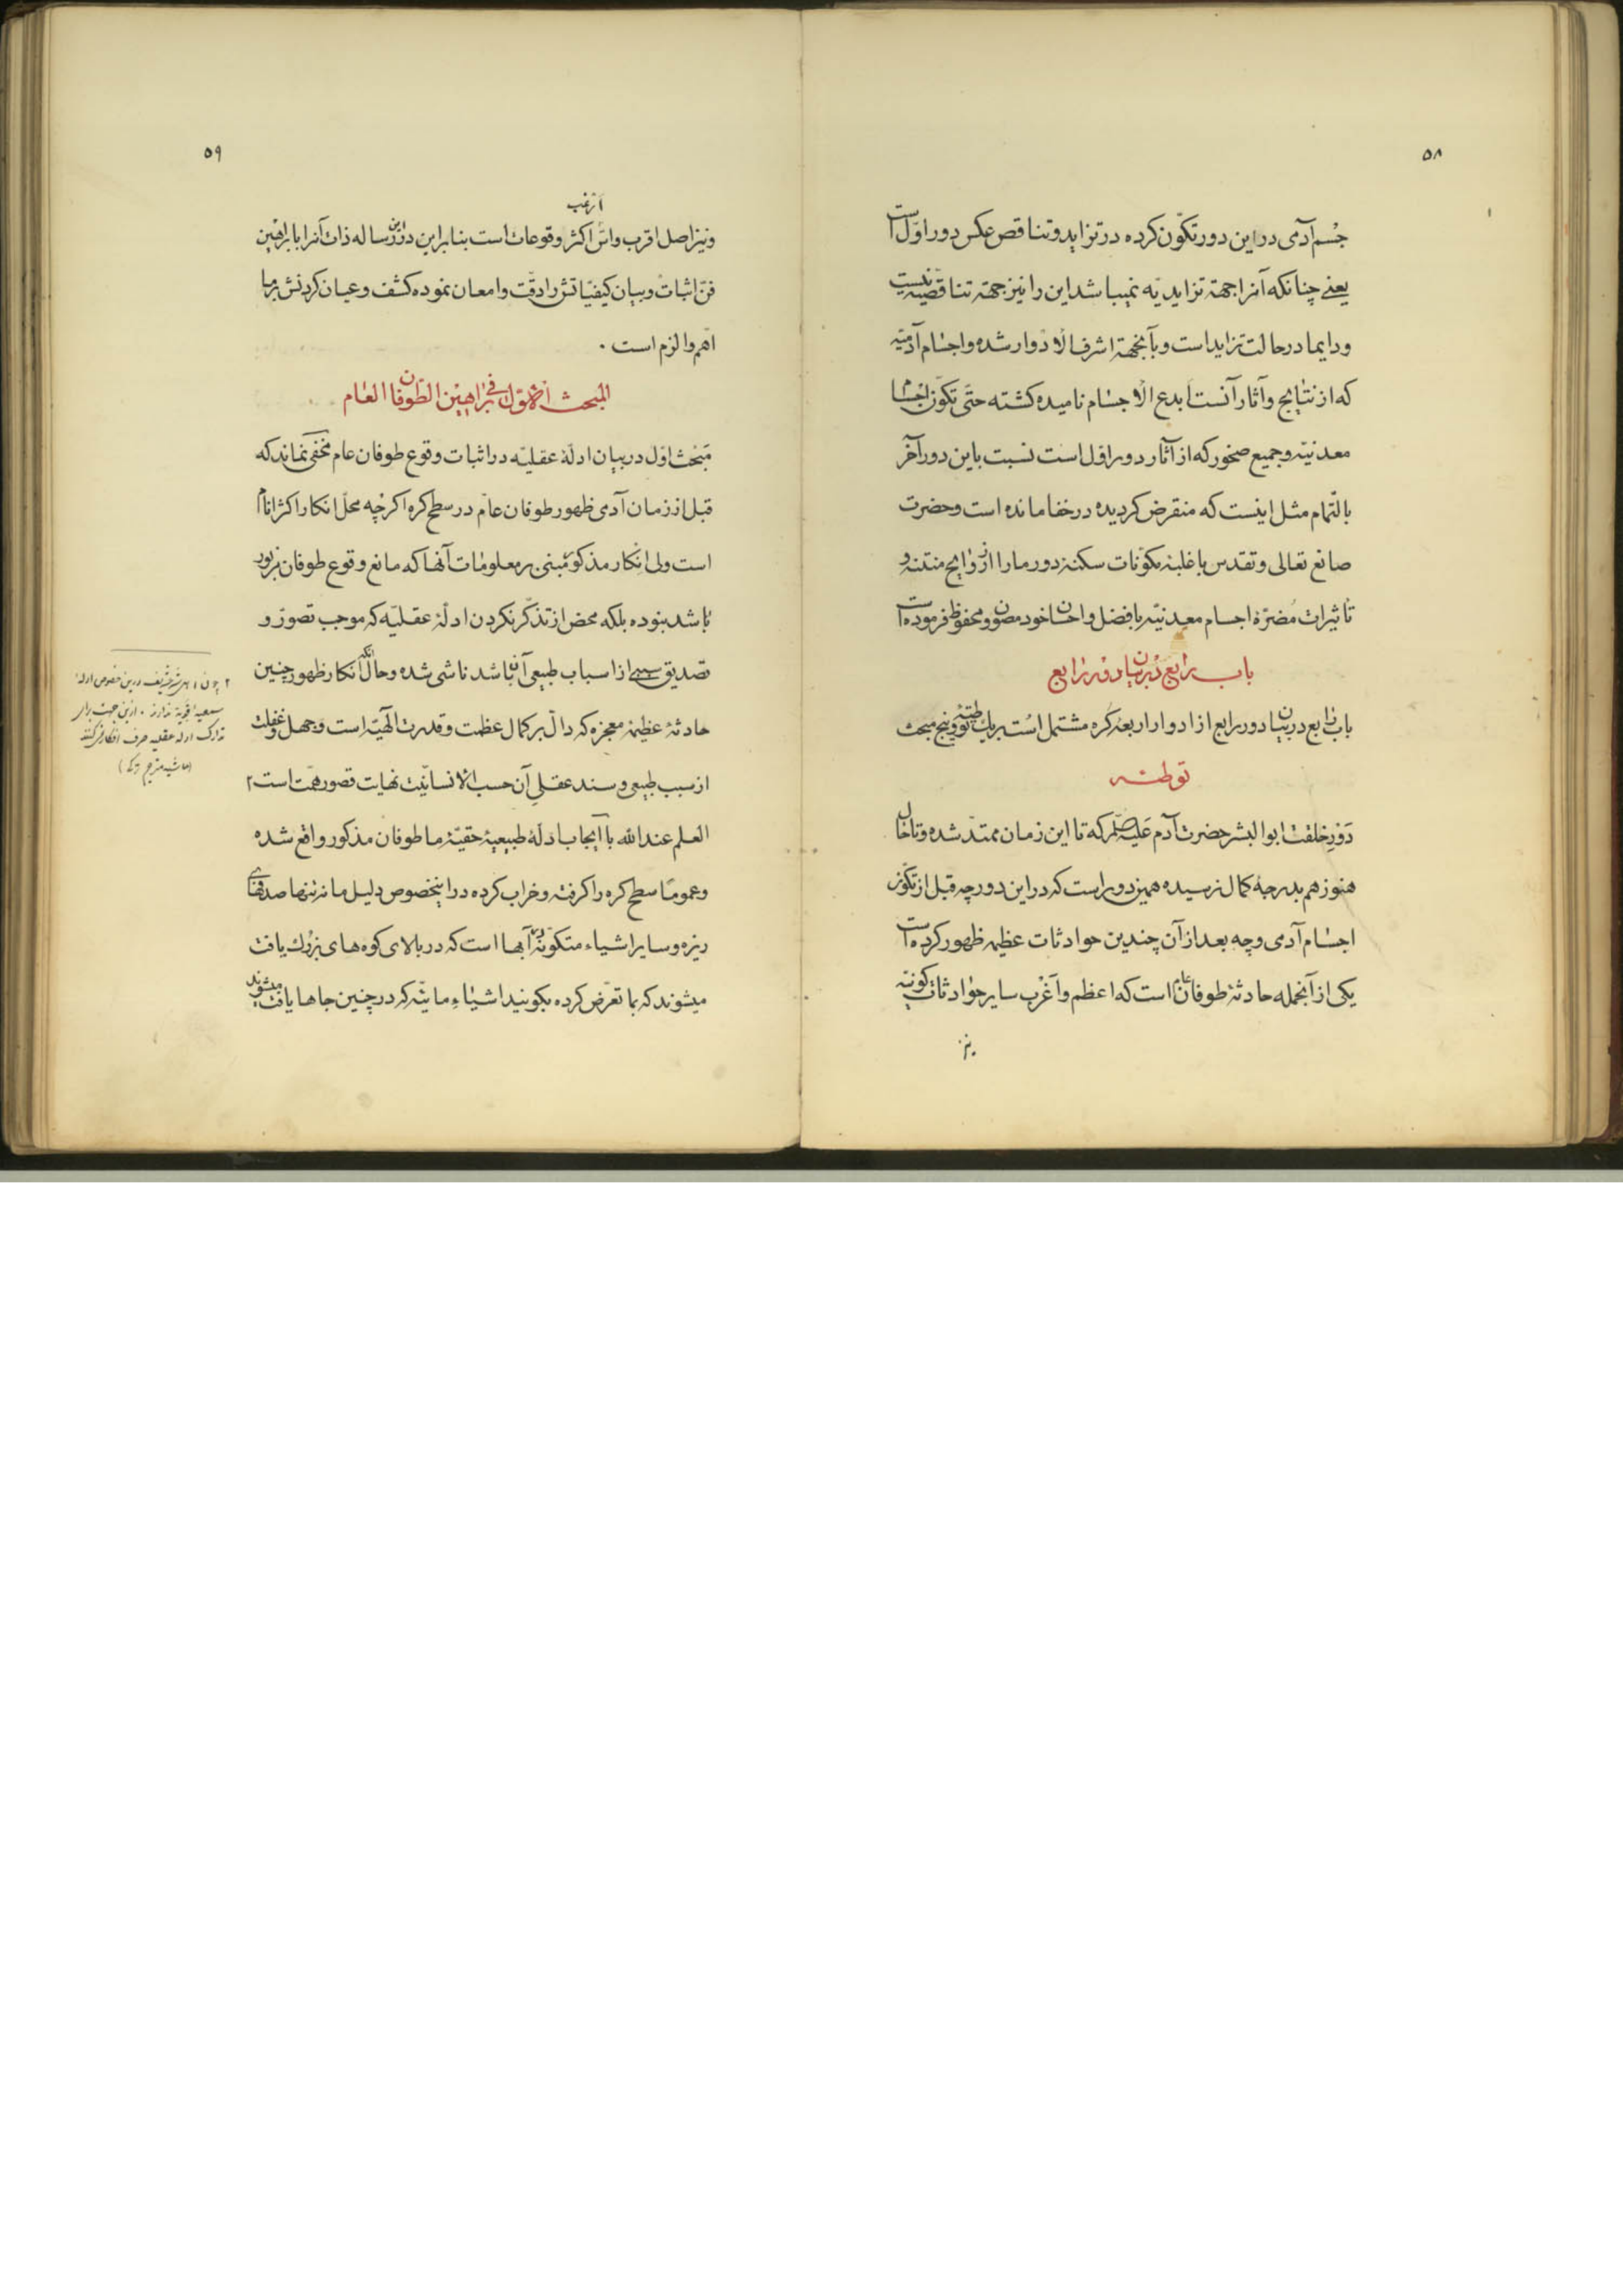 ۵۸
جسم آدمی در این دور تکوّن کرده در تزاید و تناقص عکس دور اوّل است
یعنے چنانکه آنرا جهة تزایدیّه نمیباشد این را نیز جهة تناقصیّه نیست
و دایما در حالت تزاید است و بآنجهة اشرف الادوار شده و اجسام آدمیّه
که از نتایج و آثار آنست ابدع الاجسام نامیده کشته حتّی تکوّن اجسام
معدنیّه و جمیع صخور که از آثار دور اوّل است نسبت باین دور آخر
بالتّمام مثل اینست که منقرض کردیده در خفا مانده است و حضرت
صانع تعالی و تقدس با غلبهٔ مکوّنات سکنهٔ دور ما را از روایح منتنه و
تاثیرات مُضرّهٔ اجسام معدنیّه با فضل و احسان خود مصون و محفوظ فرموده است
باب رابع در بیان دور رابع
باب رابع در بیان دور رابع از ادوار اربعهٔ کره مشتمل است بر یک توطئه و پنج مبحث
توطئه
دَورِ خلقت ابو البشر حضرت آدم عَلَیه که تا این زمان ممتدّ شده و تا حال
هنوز هم بدرجهٔ کمال نرسیده همین دور است که در این دور چه قبل از تکوّن
اجسام آدمی و چه بعد از آن چندین حوادثات عظیمه ظهور کرده است
یکی از آنجمله حادثهٔ طوفان عام است که اعظم و اَغْرب سایر حوادثات کونیّه
و نیز
۵۹
و نیز اصل اقرب و اسّ اکثر وقوعات است بنابراین در این رساله ذات آنرا با براهین
فنّ اثبات و بیان کیفیّاتش را دقّت و امعان نموده کشف و عیان کردنش بر ما
اهم و الزم است ٠
المبحث الاوّل فی براهین الطّوفان العام
مَبحث اوّل در بیان ادلّهٔ عقلیّه در اثبات وقوع طوفان عام مخفی نماند که
قبل از زمان آدمی ظهور طوفان عامّ در سطح کره اکرچه محلّ انکار اکثر انام
است ولی انکار مذکور مبنی بر معلومات آنها که مانع وقوع طوفان مزبور
باشد نبوده بلکه محض از تذکّر نکردن ادلّهٔ عقلیّه که موجب تصوّر و
تصدیق سببی از اسباب طبیعی آن باشد ناشی شده و حال آنکه انکار ظهور چنین
حادثهٔ عظیمهٔ معجزه که دالّ بر کمال عظمت و قدرت الهیّه است و جهل و غفلت
از سبب طبیعی و سند عقلی آن حسب الانسانیّت نهایت قصور همّت است ۲
العلم عند الله با ایجاب ادلّهٔ طبیعیهٔ حقیّهٔ ما طوفان مذکور واقع شده
و عموماً سطح کره را کرفته و خراب کرده در اینخصوص دلیل ما نه تنها صدفهای
ریزه و سایر اشیاء متکوّنهٔ در آبها است که در بالای کوه های بزرک یافت
میشوند که بما تعرّض کرده بکویند اشیاءِ مائیّه که در چنین جاها یافت میشوند
۲ چون شرع شریف درین خصوص ادلهٔ
سمعیه ندارند ٠ ازین جهت برای
تدارک ادله عقلیه صرف افکار کنند
(حاشیه مترجم ترکی)